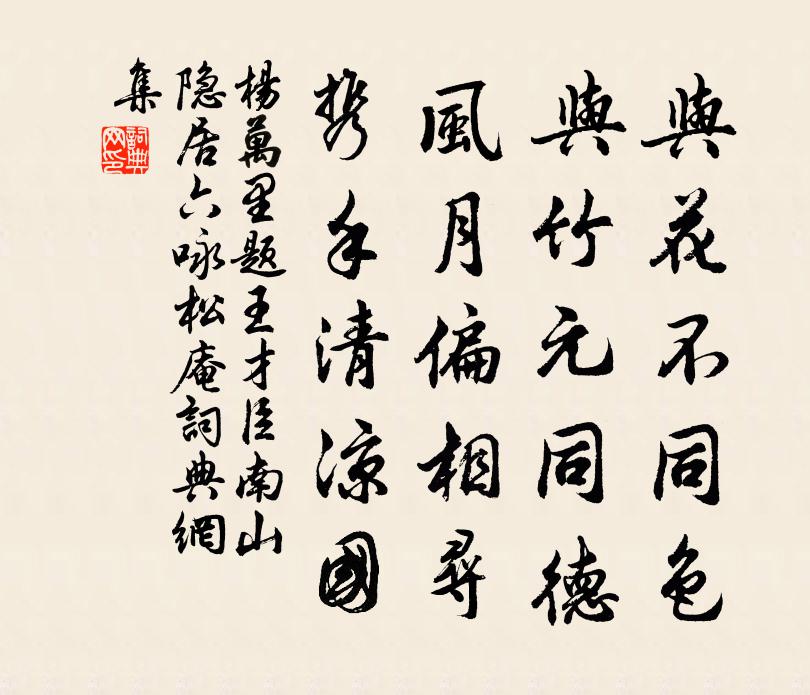 與花不同色
與竹元同德
風月偏相尋
携手清涼國
楊萬里題王才臣南山
隐居六咏松庵詞典網
集
詞典
网印